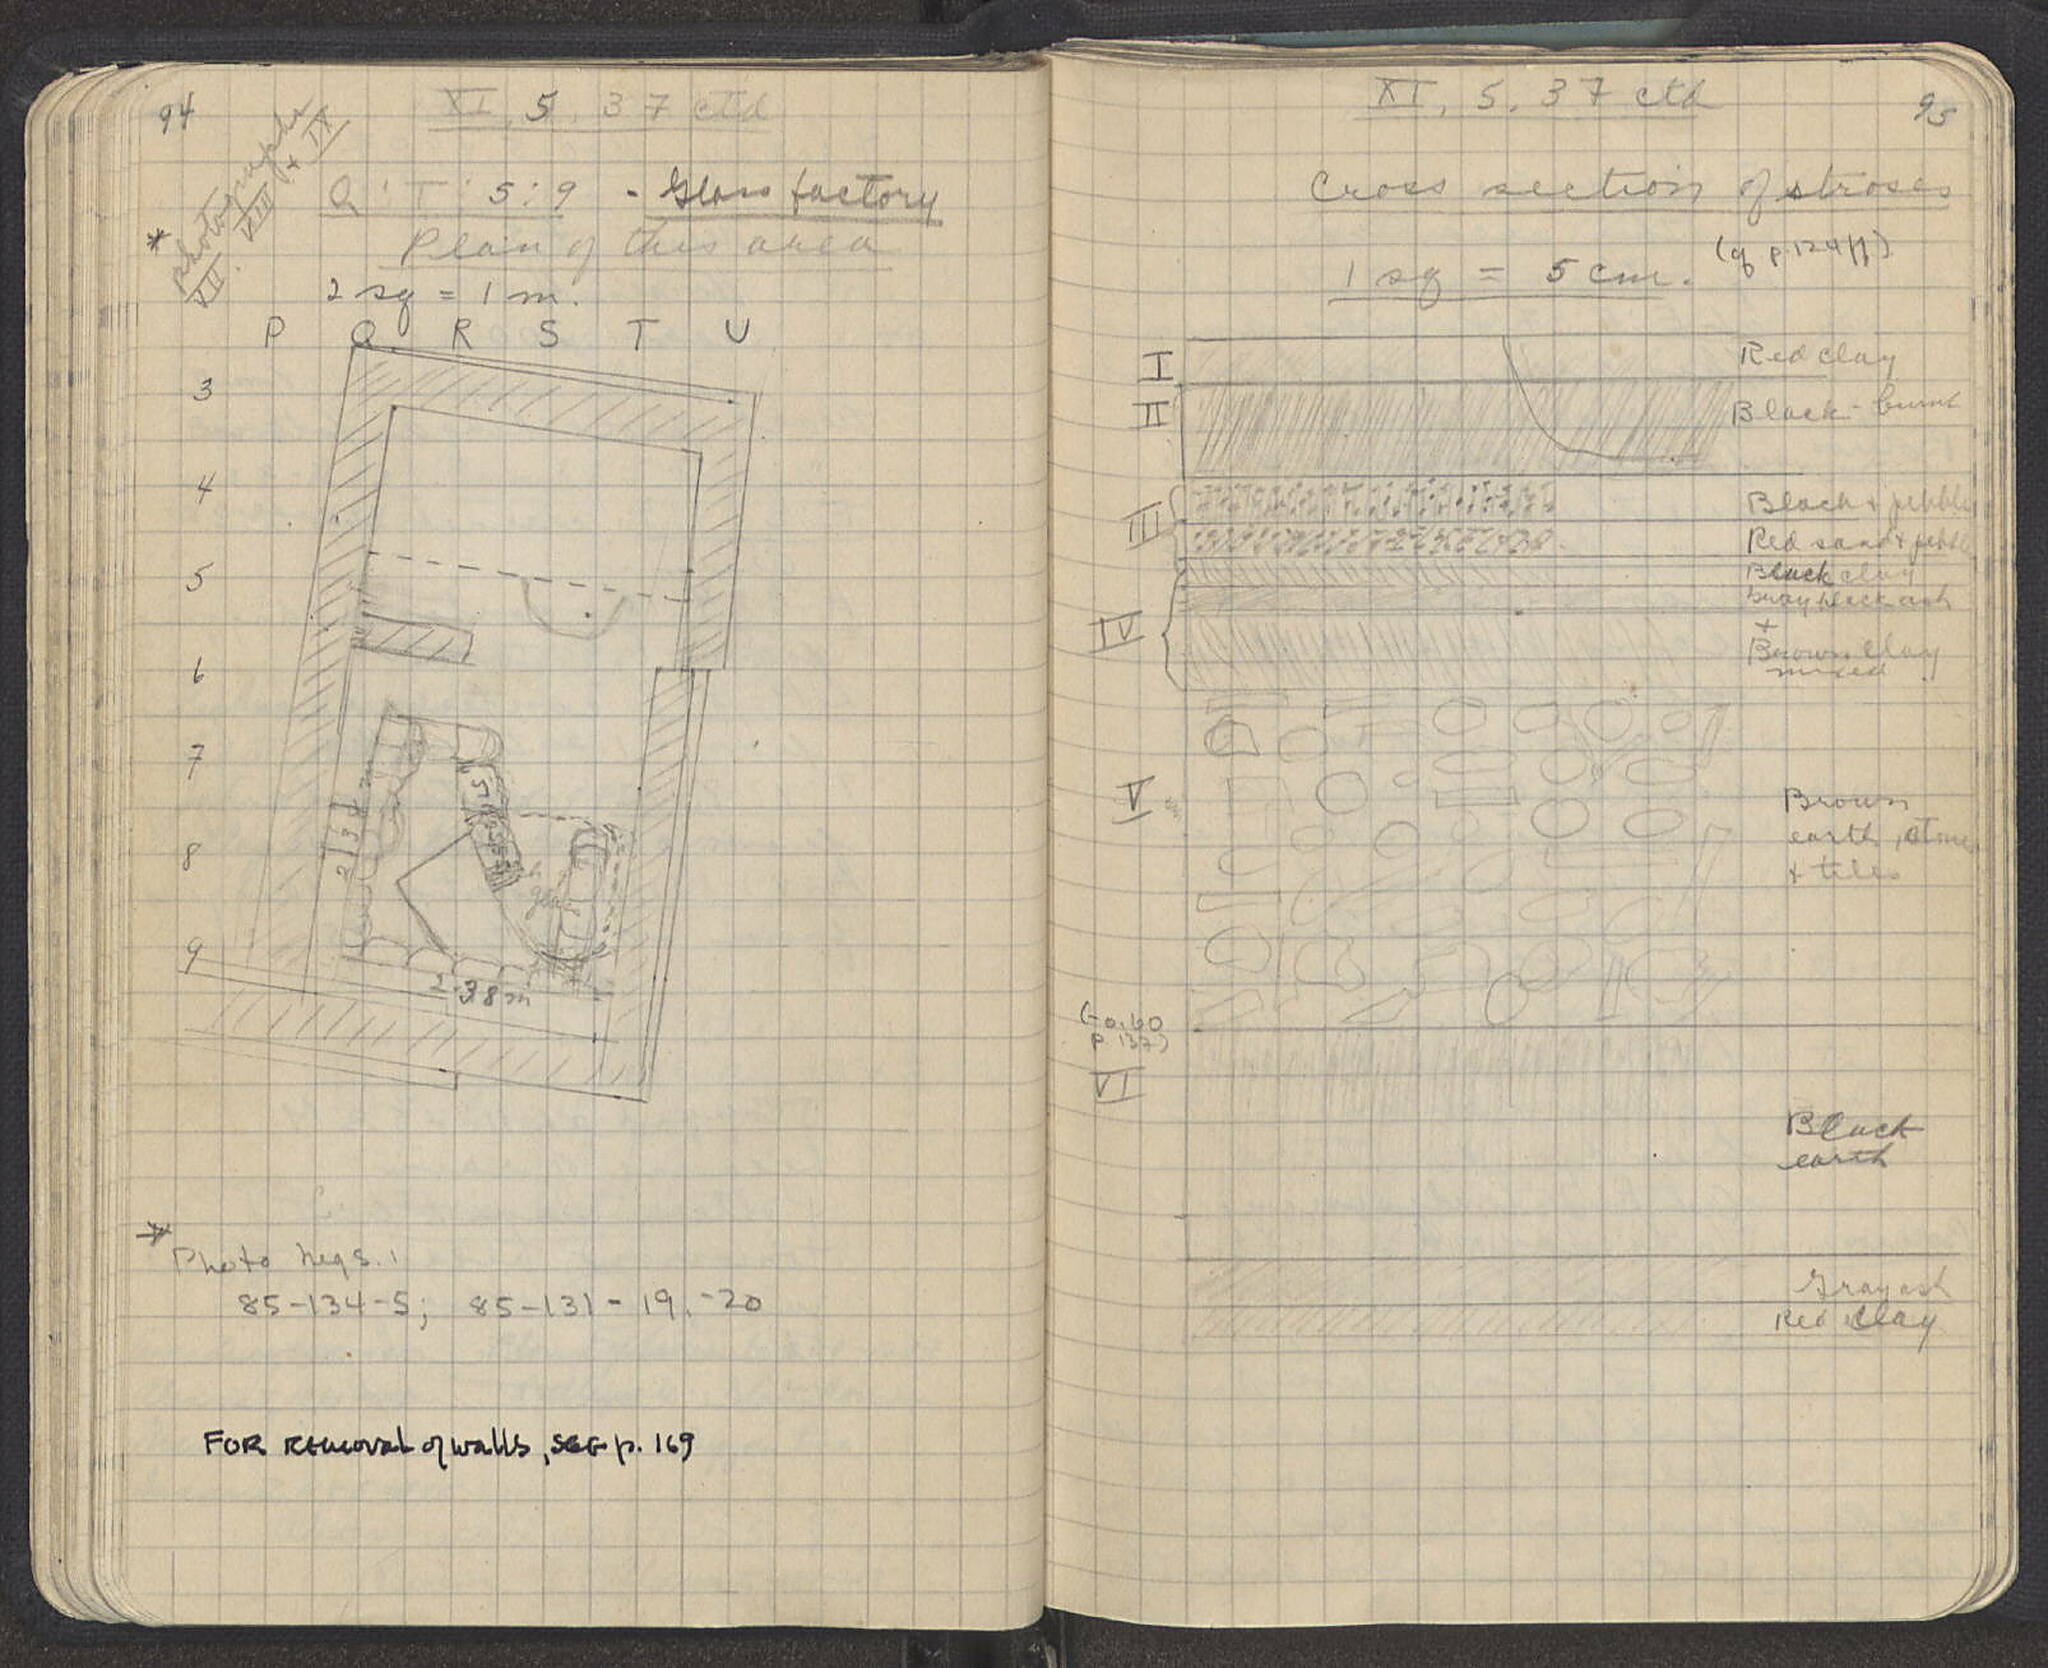 94
XI, 5, 37 ctd
photographs
VII. VIII + IX
Q ' T ' 5 : 9 - Glass factory
* Plan of this area
2 sq = 1 m.
P Q R S T U
3
4
5
6
7
8
9
2.38m
*
Photo negs.
85-134-5; 85-131-19,-20
FOR REMOVAL of walls, SEE p. 169
XI, 5. 37 ctd
95
Cross section of stroses
(cf p. 124 ff)
1 sq = 5 cm.
I Red clay
II Black - burnt
III Black + pebbles
Red sand + pebbles
Black clay
IV Gray black ash
+
Brown clay
mixed
V Brown
earth, stones
+ tiles
(-0.60
p. 137)
VI
Black
earth
Gray ash
Red Clay